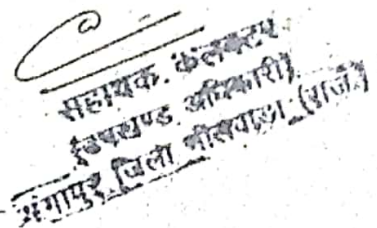 सहायक कलक्टर
(उपखण्ड अधिकारी)
गंगापुर जिला भीलवाड़ा (राज.)